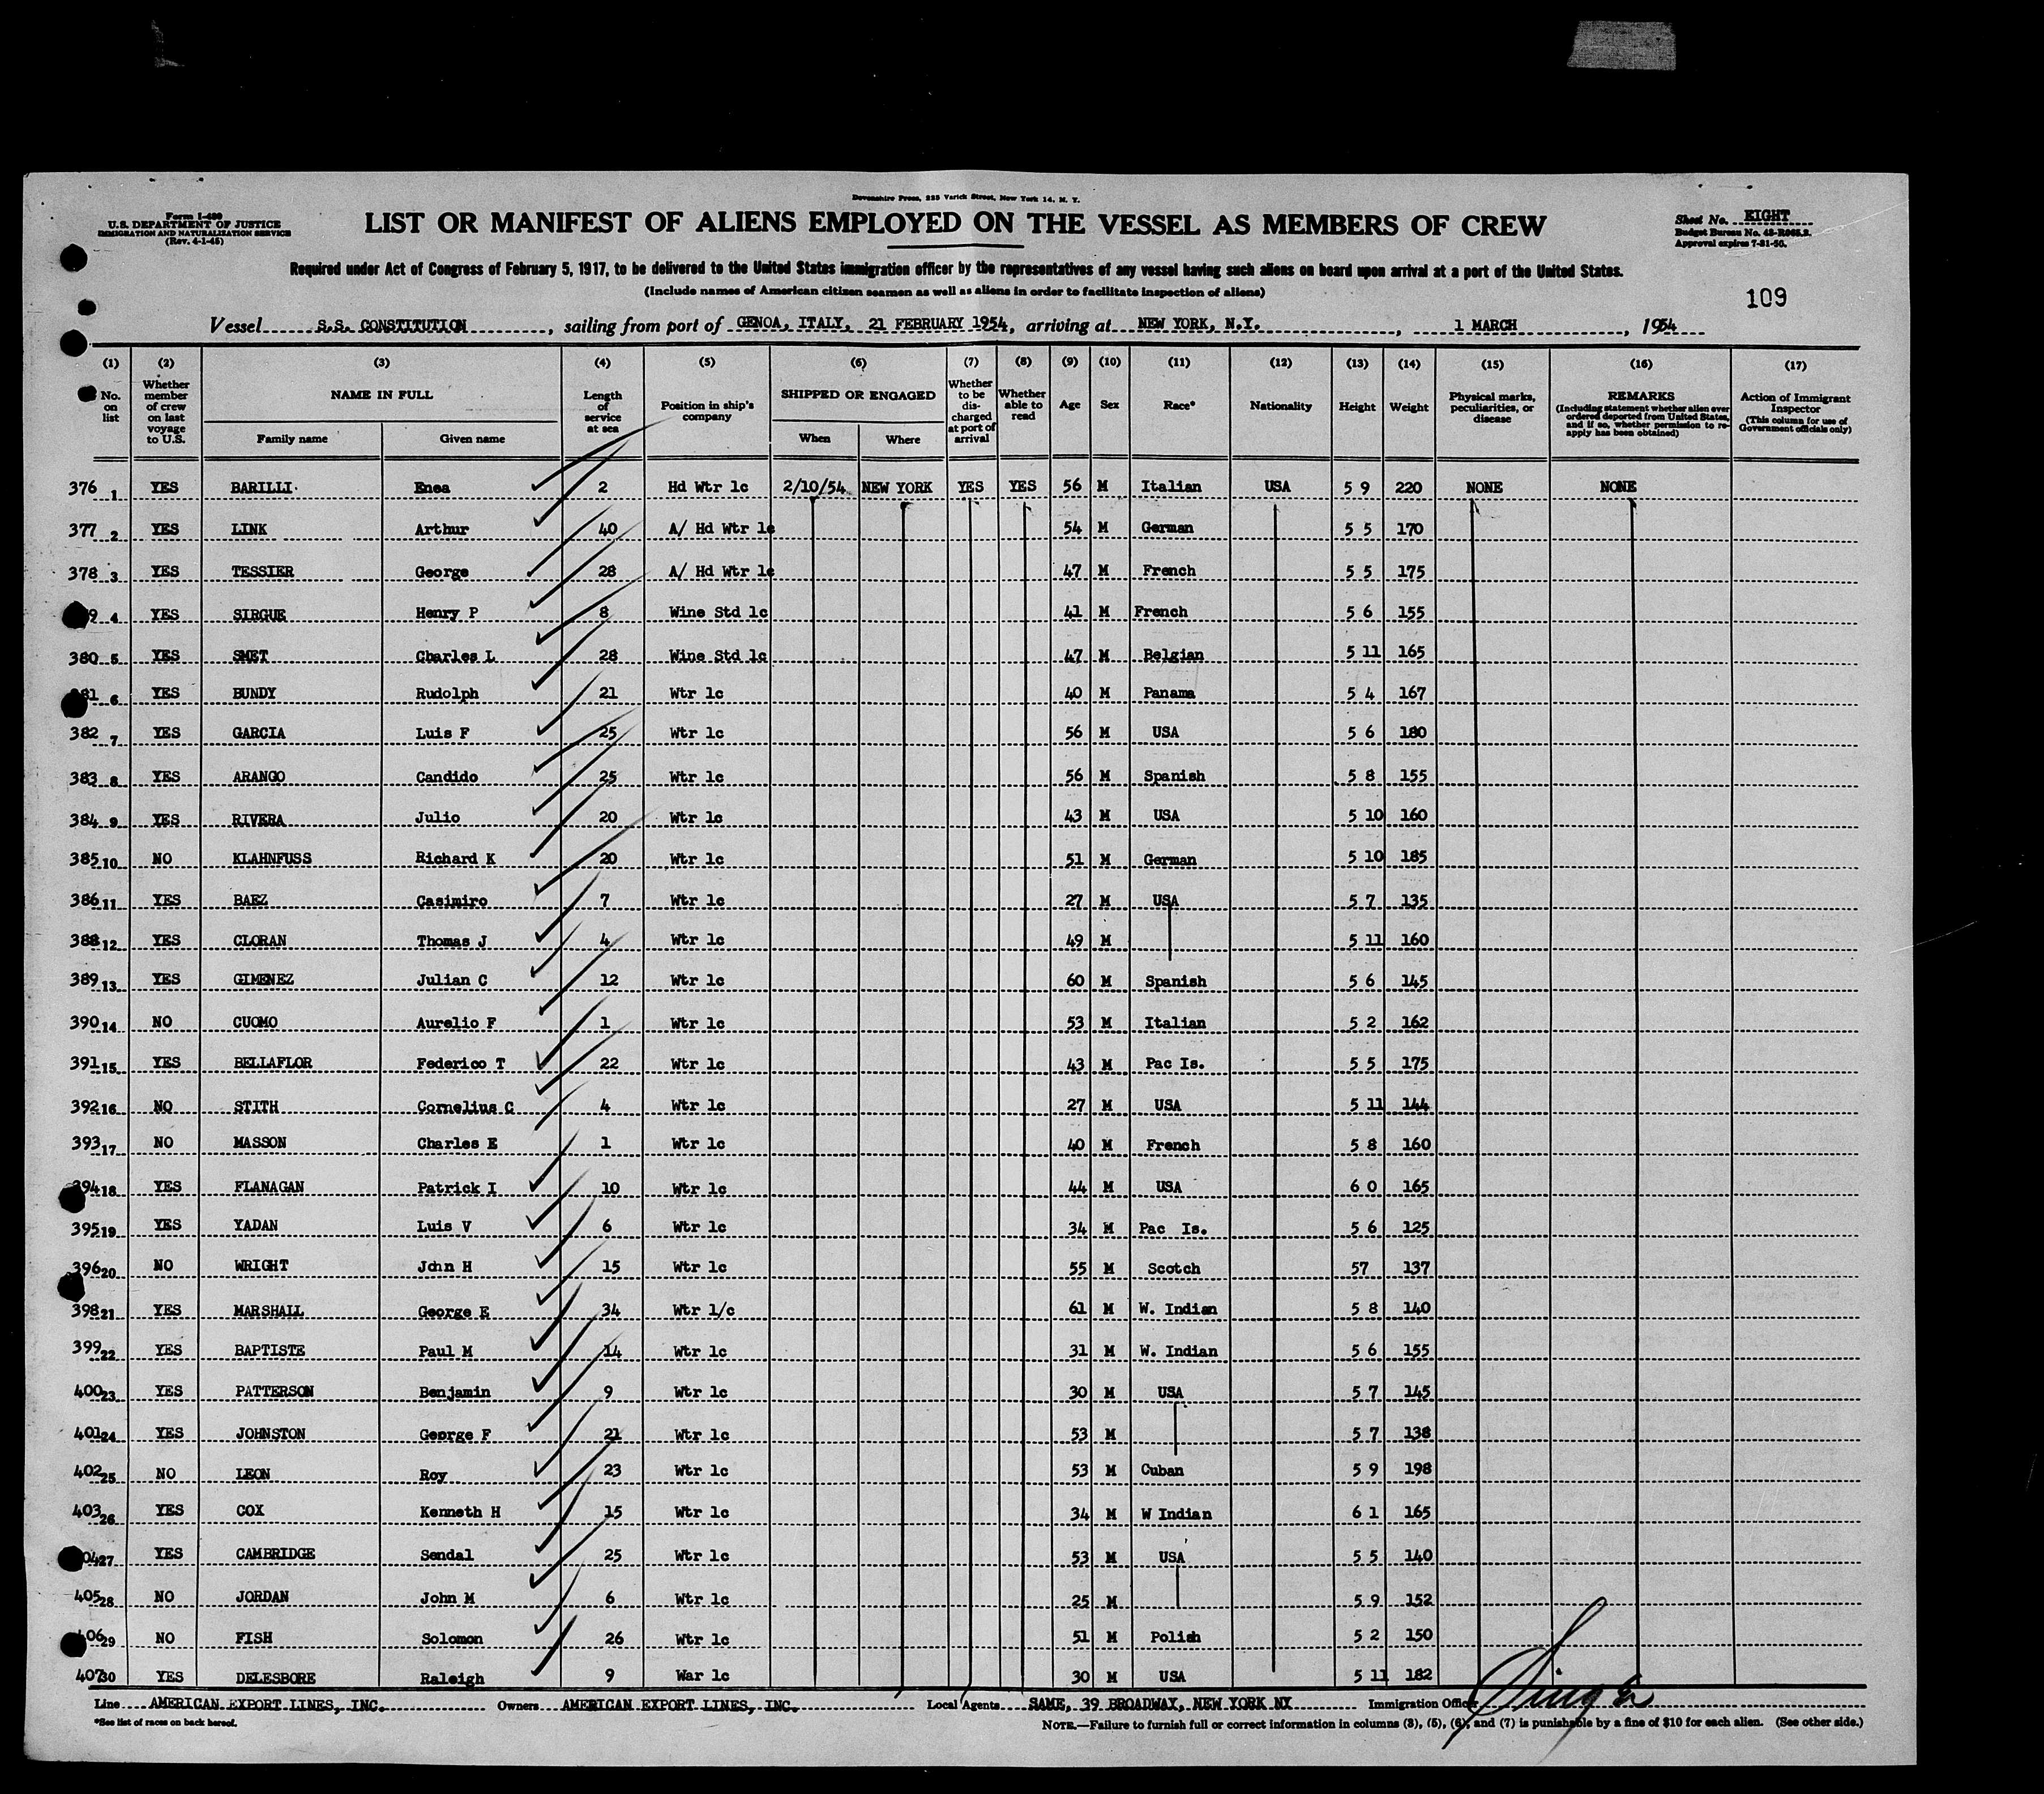 Devonshire Press, 225 Varick Street, New York 14, N. Y.
Form I-480
U.S. DEPARTMENT OF JUSTICE
IMMIGRATION AND NATURALIZATION SERVICE
(Rev. 4-1-45)
LIST OR MANIFEST OF ALIENS EMPLOYED ON THE VESSEL AS MEMBERS OF CREW
Sheet No. EIGHT
Budget Bureau No. 43-R065.2.
Approval expires 7-31-50.
Required under Act of Congress of February 5, 1917, to be delivered to the United States immigration officer by the representatives of any vessel having such aliens on board upon arrival at a port of the United States.
(Include names of American citizen seamen as well as aliens in order to facilitate inspection of aliens)
109
Vessel S.S. CONSTITUTION, sailing from port of GENOA, ITALY, 21 FEBRUARY 1954, arriving at NEW YORK, N.Y., 1 MARCH, 1954
(1) (2) (3) (4) (5) (6) (7) (8) (9) (10) (11) (12) (13) (14) (15) (16) (17)
No. on list
Whether member of crew on last voyage to U.S.
NAME IN FULL
Family name
Given name
Length of service at sea
Position in ship's company
SHIPPED OR ENGAGED
When
Where
Whether to be discharged at port of arrival
Whether able to read
Age
Sex
Race*
Nationality
Height
Weight
Physical marks, peculiarities, or disease
REMARKS
(Including statement whether alien ever ordered deported from United States, and if so, whether permission to re-apply has been obtained)
Action of Immigrant Inspector
(This column for use of Government officials only)
376 1 YES BARILLI Enea 2 Hd Wtr 1c 2/10/54 NEW YORK YES YES 56 M Italian USA 5 9 220 NONE NONE
377 2 YES LINK Arthur 40 A/ Hd Wtr 1c 54 M German 5 5 170
378 3 YES TESSIER George 28 A/ Hd Wtr 1c 47 M French 5 5 175
9 4 YES SIRGUE Henry P 8 Wine Std 1c 41 M French 5 6 155
380 5 YES SMET Charles L 28 Wine Std 1c 47 M Belgian 5 11 165
81 6 YES BUNDY Rudolph 21 Wtr 1c 40 M Panama 5 4 167
382 7 YES GARCIA Luis F 25 Wtr 1c 56 M USA 5 6 180
383 8 YES ARANGO Candido 25 Wtr 1c 56 M Spanish 5 8 155
384 9 YES RIVERA Julio 20 Wtr 1c 43 M USA 5 10 160
385 10 NO KLAHNFUSS Richard K 20 Wtr 1c 51 M German 5 10 185
386 11 YES BAEZ Casimiro 7 Wtr 1c 27 M USA 5 7 135
388 12 YES CLORAN Thomas J 4 Wtr 1c 49 M 5 11 160
389 13 YES GIMENEZ Julian C 12 Wtr 1c 60 M Spanish 5 6 145
390 14 NO CUOMO Aurelio F 1 Wtr 1c 53 M Italian 5 2 162
391 15 YES BELLAFLOR Federico T 22 Wtr 1c 43 M Pac Is. 5 5 175
392 16 NO STITH Cornelius C 4 Wtr 1c 27 M USA 5 11 144
393 17 NO MASSON Charles E 1 Wtr 1c 40 M French 5 8 160
394 18 YES FLANAGAN Patrick I 10 Wtr 1c 44 M USA 6 0 165
395 19 YES YADAN Luis V 6 Wtr 1c 34 M Pac Is. 5 6 125
396 20 NO WRIGHT John H 15 Wtr 1c 55 M Scotch 57 137
398 21 YES MARSHALL George E 34 Wtr 1/c 61 M W. Indian 5 8 140
399 22 YES BAPTISTE Paul M 14 Wtr 1c 31 M W. Indian 5 6 155
400 23 YES PATTERSON Benjamin 9 Wtr 1c 30 M USA 5 7 145
401 24 YES JOHNSTON George F 21 Wtr 1c 53 M 5 7 138
402 25 NO LEON Roy 23 Wtr 1c 53 M Cuban 5 9 198
403 26 YES COX Kenneth H 15 Wtr 1c 34 M W Indian 6 1 165
04 27 YES CAMBRIDGE Sendal 25 Wtr 1c 53 M USA 5 5 140
405 28 NO JORDAN John M 6 Wtr 1c 25 M 5 9 152
406 29 NO FISH Solomon 26 Wtr 1c 51 M Polish 5 2 150
407 30 YES DELESBORE Raleigh 9 War 1c 30 M USA 5 11 182
Line AMERICAN EXPORT LINES, INC. Owners AMERICAN EXPORT LINES, INC. Local Agents SAME, 39 BROADWAY, NEW YORK NY Immigration Officer
*See list of races on back hereof.
NOTE.—Failure to furnish full or correct information in columns (3), (5), (6), and (7) is punishable by a fine of $10 for each alien. (See other side.)